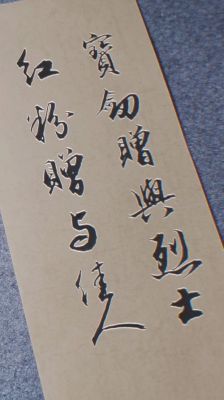 寶劎贈與烈士
红粉贈与佳人